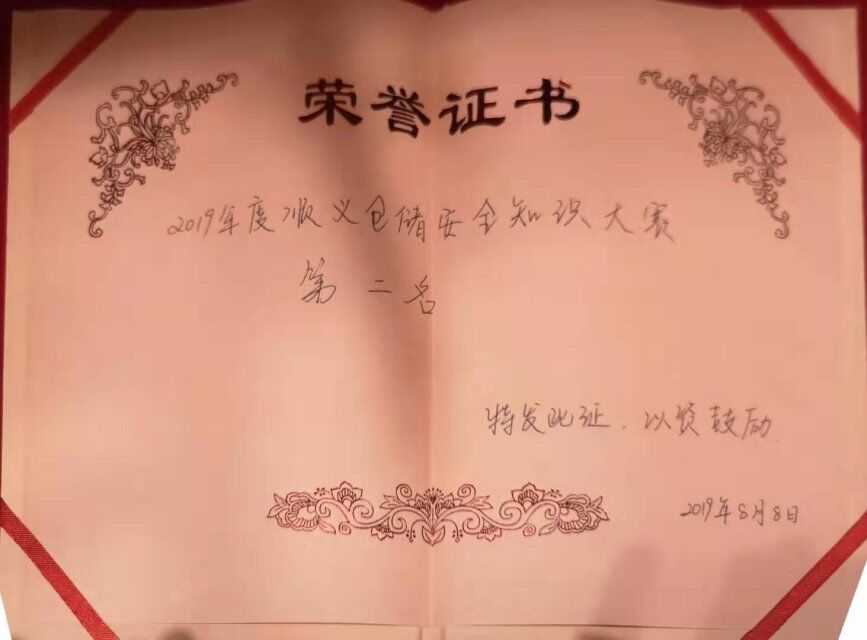 荣誉证书
2019年度顺义仓储安全知识大赛
第二名
特发此证.以资鼓励
2019年8月8日